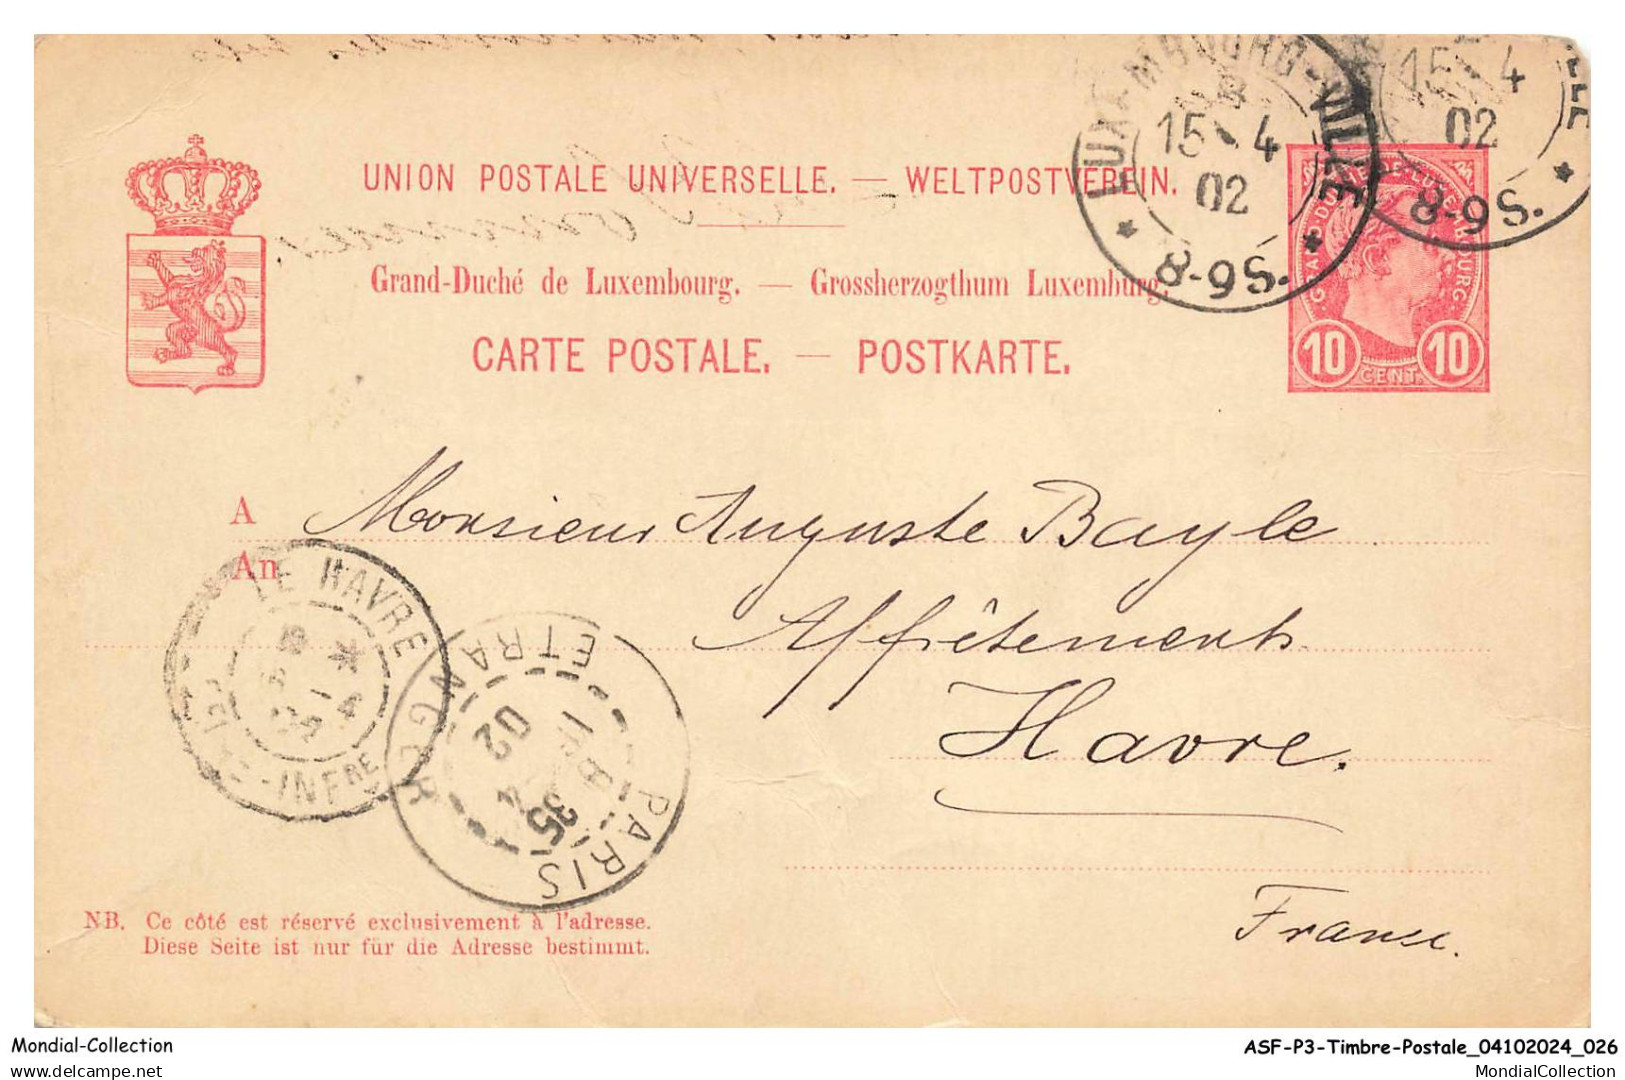 UNION POSTALE UNIVERSELLE. — WELTPOSTVEREIN.
Grand-Duché de Luxembourg. — Grossherzogthum Luxemburg.
CARTE POSTALE. — POSTKARTE.
LUXEMBOURG-VILLE
15 4
02
* 6-8S. *
15 4
02
6-8S. *
G^D-DUCHÉ DE LUXEMBOURG
10 CENT. 10
A Monsieur Auguste Bayle
An
Affrêtements
Havre.
France.
LE HAVRE
-INF^RE
PARIS
ETRANGER
02
35
NB. Ce côté est réservé exclusivement à l'adresse.
Diese Seite ist nur für die Adresse bestimmt.
Mondial-Collection
ASF-P3-Timbre-Postale_04102024_026
delcampe.net
MondialCollection